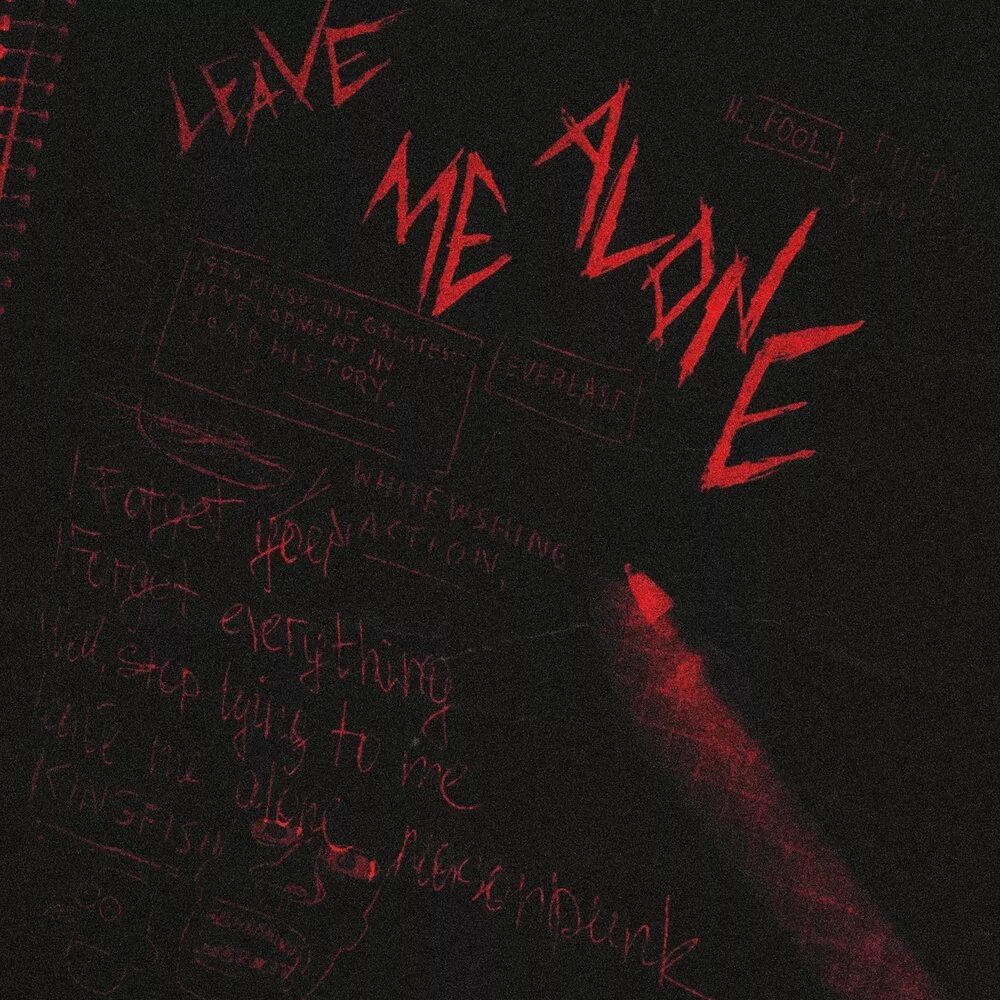 LEAVE
ME
ALONE
FOOL.
1930 RINSO: THE GREATEST
DEVELOPMENT IN
SOAP HISTORY.
EVERLAST
WHITEWSHING
ACTION.
Forget you
Forget everything
Well, stop lying to me
me alone
KINGFISH